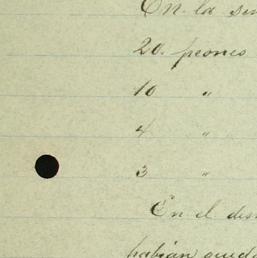 En la
20. peones
10 "
4 "
3 "
En el
habían